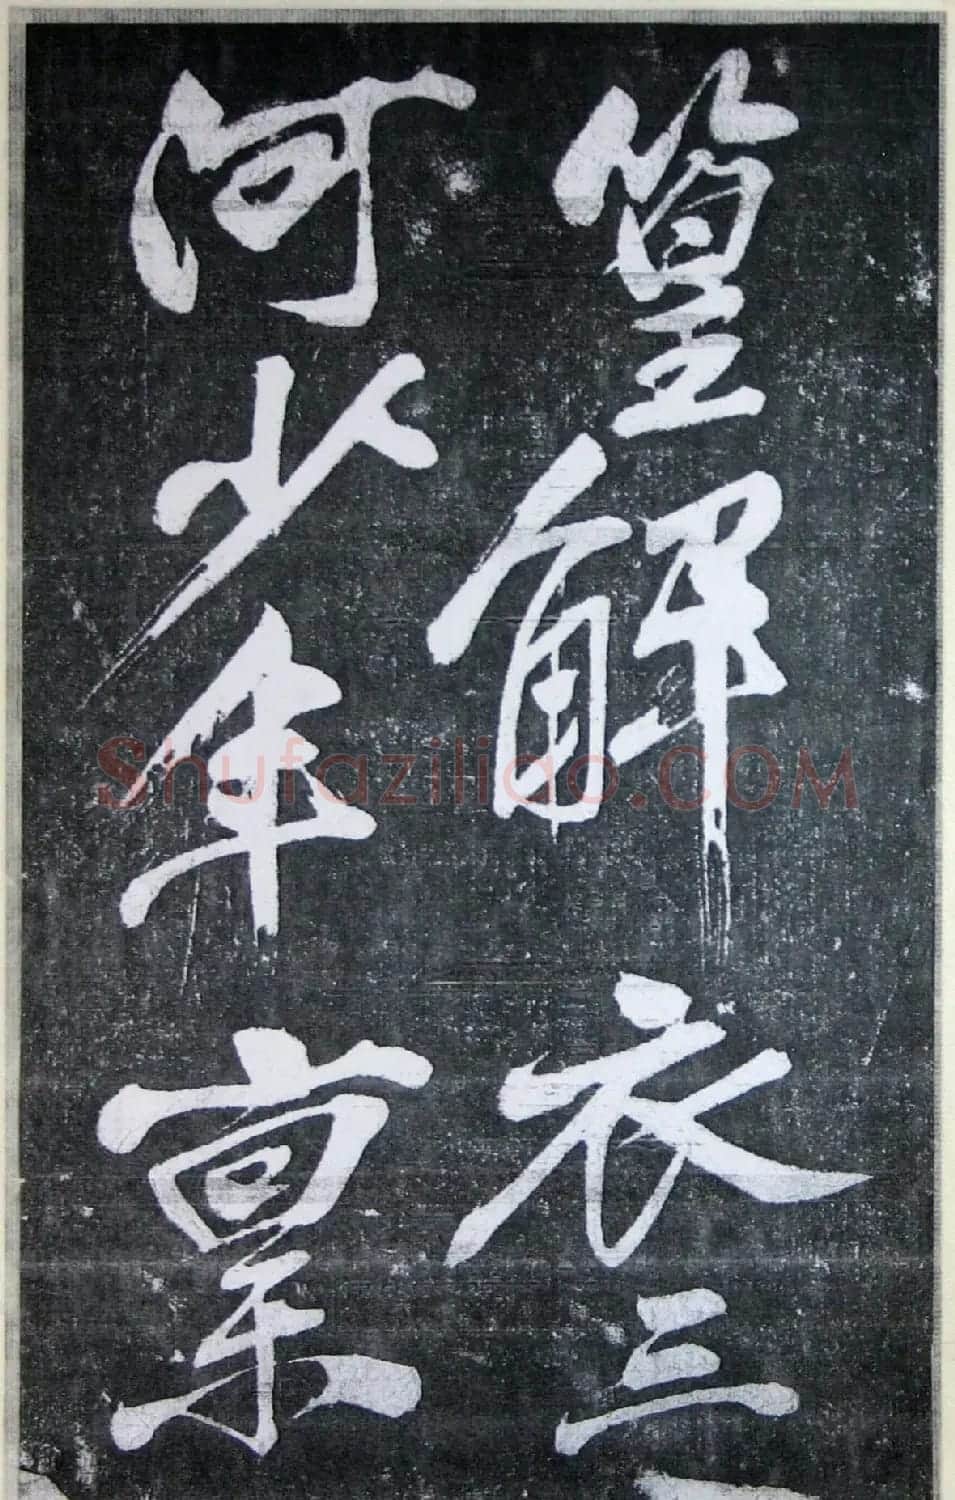 篁解衣三
河少年稟
Shufaziliao.COM